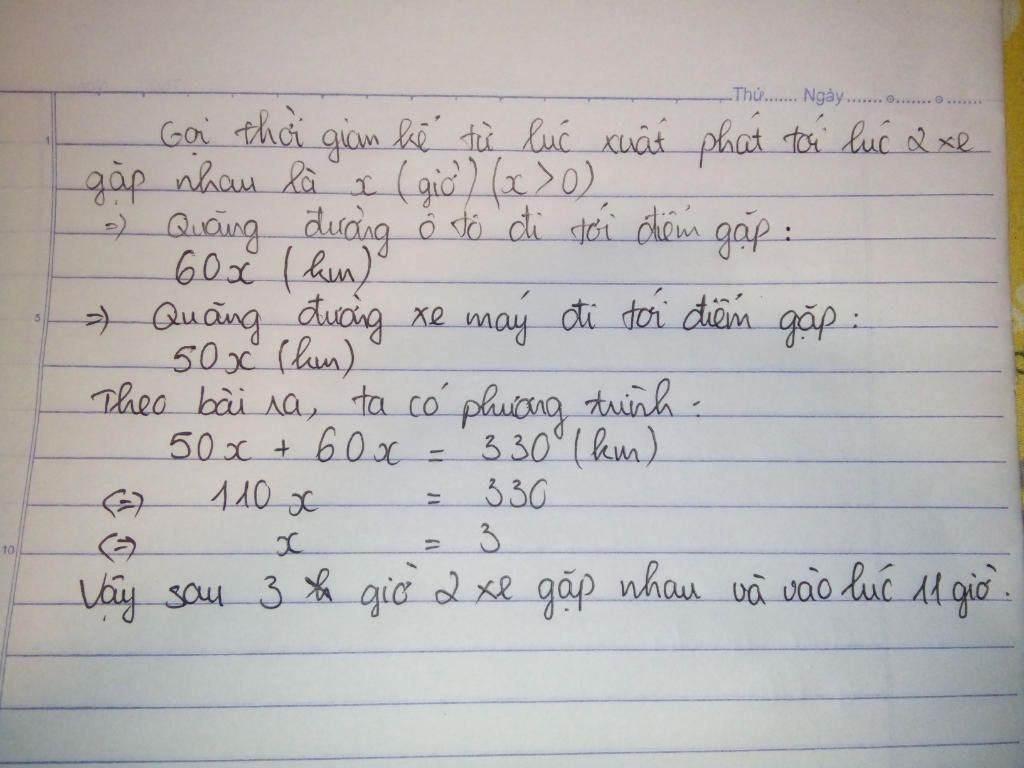 Thứ....... Ngày....... ........ .......
1
Gọi thời gian kể từ lúc xuất phát tới lúc 2 xe
gặp nhau là x (giờ) (x > 0)
=> Quãng đường ô tô đi tới điểm gặp :
60x (km)
5
=> Quãng đường xe máy đi tới điểm gặp :
50x (km)
Theo bài ra, ta có phương trình :
50x + 60x = 330 (km)
<=> 110x = 330
10
<=> x = 3
Vậy sau 3 giờ 2 xe gặp nhau và vào lúc 11 giờ.